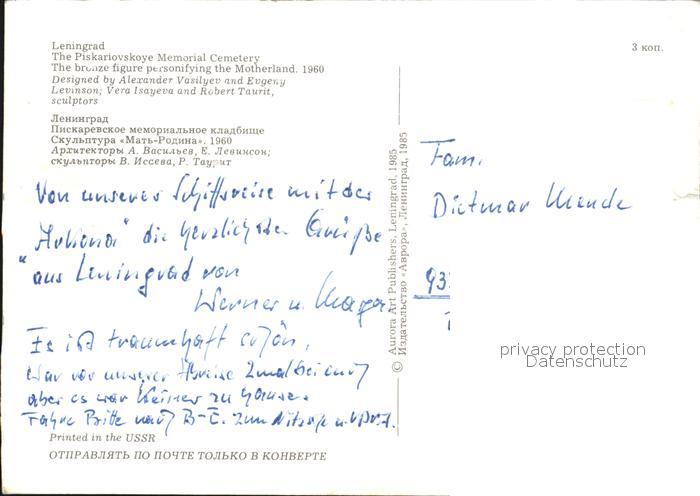 Leningrad
The Piskariovskoye Memorial Cemetery
The bronze figure personifying the Motherland. 1960
Designed by Alexander Vasilyev and Evgeny
Levinson; Vera Isayeva and Robert Taurit,
sculptors
Ленинград
Пискаревское мемориальное кладбище
Скульптура «Мать-Родина». 1960
Архитекторы А. Васильев, Е. Левинсон;
скульпторы В. Иссева, Р. Таурит
3 коп.
Von unserer Schiffsreise mit der
"Arkona" die herzlichsten Grüße
aus Leningrad von
Werner u.
Es ist traumhaft schön,
War vor unserer Abreise 2mal bei euch
aber es war keiner zu Hause.
Fahre Bitte nach B-E. zum
Printed in the USSR
ОТПРАВЛЯТЬ ПО ПОЧТЕ ТОЛЬКО В КОНВЕРТЕ
© Aurora Art Publishers, Leningrad, 1985
Издательство «Аврора», Ленинград, 1985
Fam.
Dietmar Mende
93
privacy protection
Datenschutz